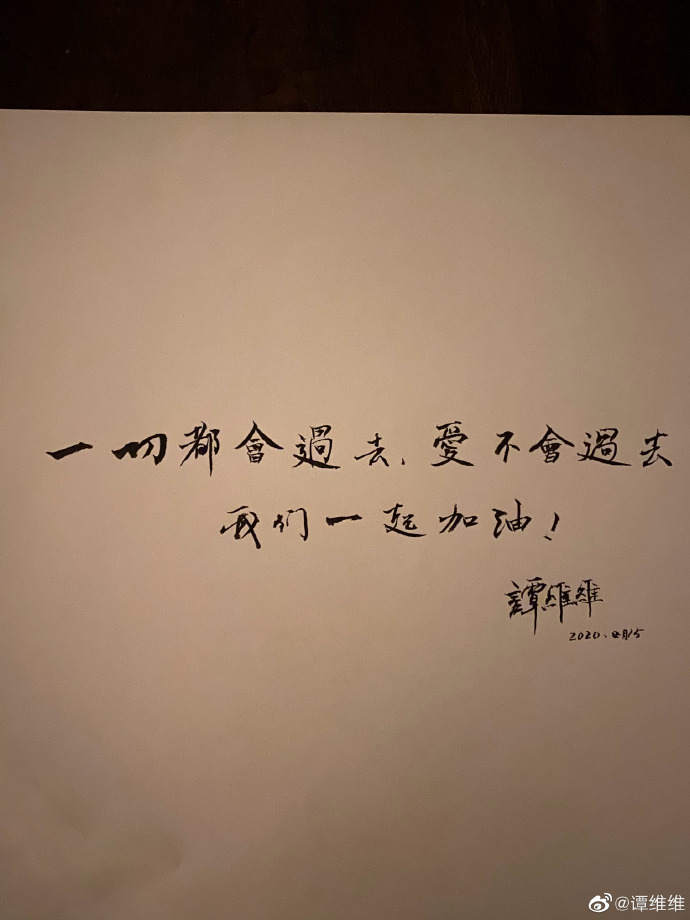 一切都會過去、愛不會過去
我们一起加油！
譚維維
2020.
@谭维维